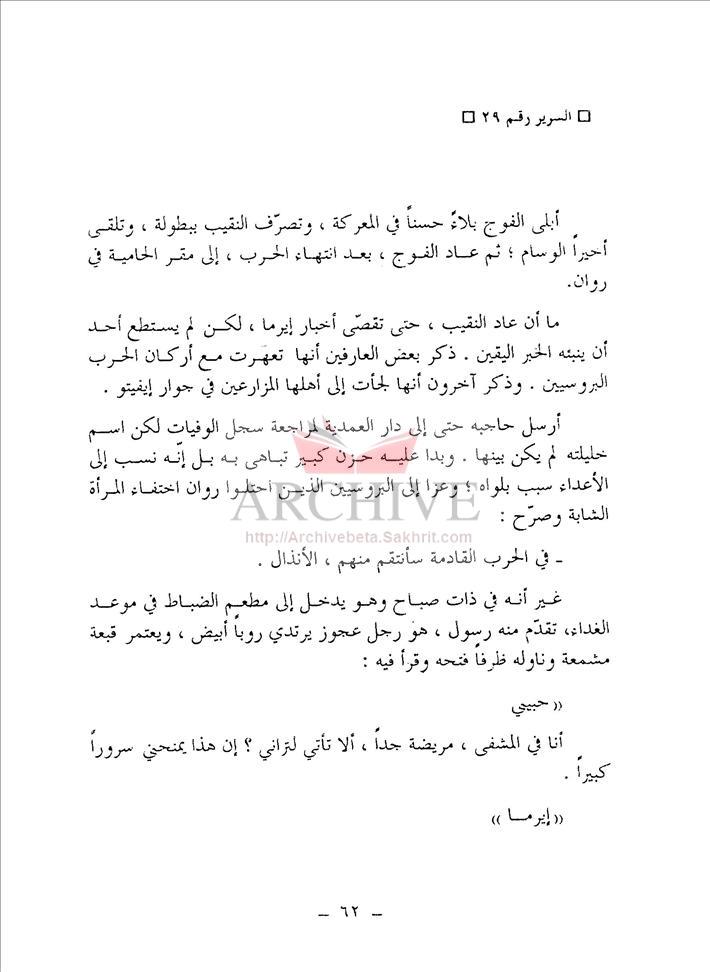 □ السرير رقم ٢٩ □
أبلى الفوج بلاءً حسناً في المعركة ، وتصرّف النقيب ببطولة ، وتلقى
أخيراً الوسام ؛ ثم عاد الفوج ، بعد انتهاء الحرب ، إلى مقر الحامية في
روان.
ما أن عاد النقيب ، حتى تقصّى أخبار إيرما ، لكن لم يستطع أحد
أن ينبئه الخبر اليقين . ذكر بعض العارفين أنها تعهّرت مع أركان الحرب
البروسيين . وذكر آخرون أنها لجأت إلى أهلها المزارعين في جوار إيفيتو .
أرسل حاجبه حتى إلى دار العمدية لمراجعة سجل الوفيات لكن اسم
خليلته لم يكن بينها . وبدا عليه حزن كبير تباهى به بل إنّه نسب إلى
الأعداء سبب بلواه ؛ وعزا إلى البروسيين الذين احتلوا روان اختفاء المرأة
الشابة وصرّح :
ARCHIVE
http://Archivebeta.Sakhrit.com
ـ في الحرب القادمة سأنتقم منهم ، الأنذال .
غير أنه في ذات صباح وهو يدخل إلى مطعم الضباط في موعد
الغداء، تقدّم منه رسول ، هو رجل عجوز يرتدي روباً أبيض ، ويعتمر قبعة
مشمعة وناوله ظرفاً فتحه وقرأ فيه :
« حبيبي
أنا في المشفى ، مريضة جداً ، ألا تأتي لتراني ؟ إن هذا يمنحني سروراً
كبيراً .
« إيرما »
ـ ٦٢ ـ